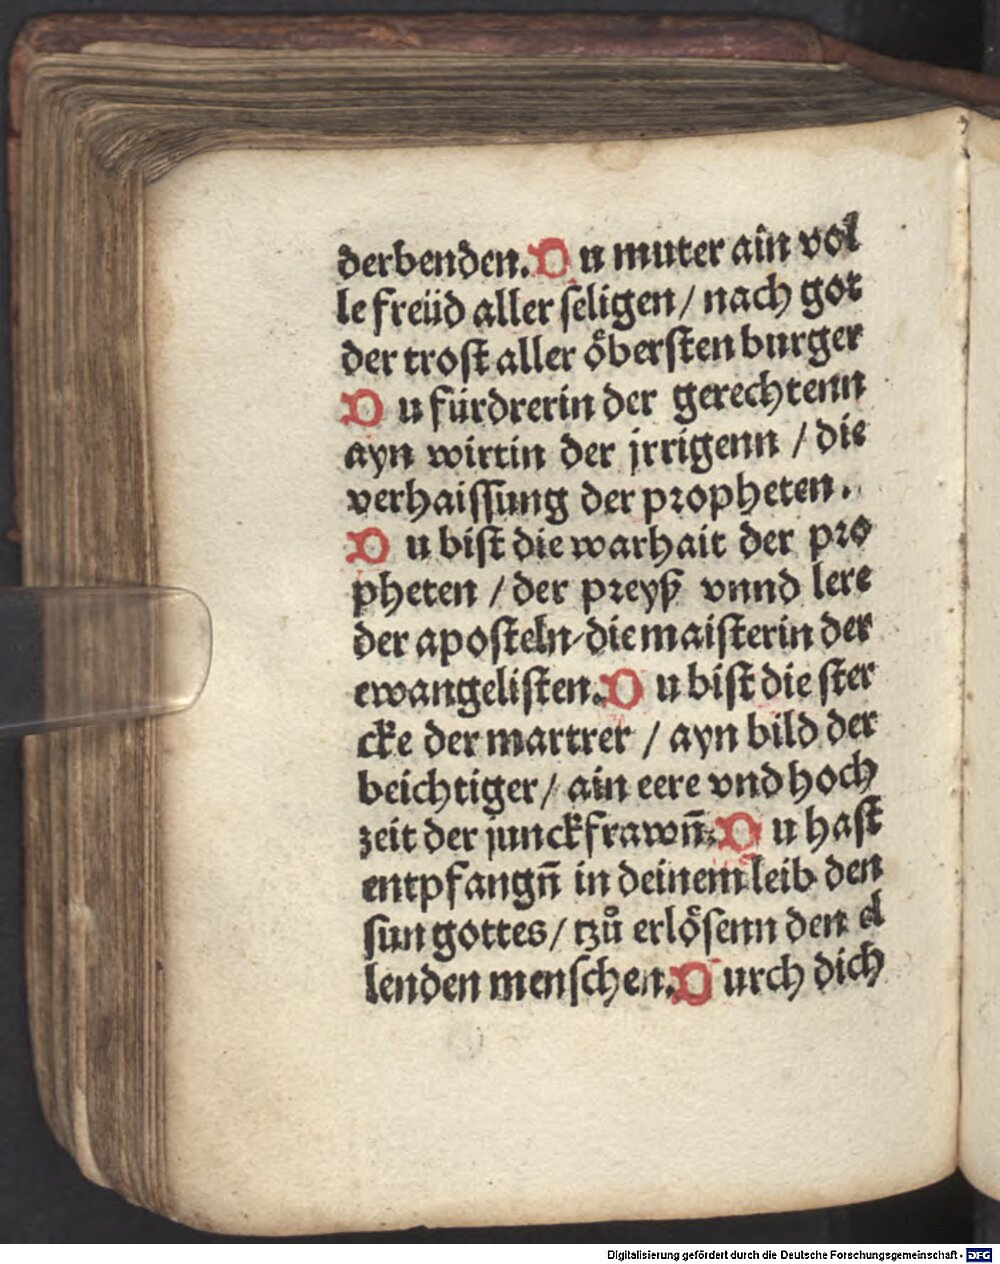 derbenden. Du muter ain vol
le freüd aller ſeligen / nach got
der troſt aller öberſten burger
Du fürdrerin der gerechtenn
ayn wirtin der jrrigenn / die
verhaiſſung der propheten.
Du biſt die warhait der pro
pheten / der preyß vnnd lere
der apoſteln / die maiſterin der
ewangeliſten. Du biſt die ſter
cke der martrer / ayn bild der
beichtiger / ain eere vnd hoch
zeit der junckfrawn̄. Du haſt
entpfangn̄ in deinem leib den
ſun gottes / tzů erlöſenn den el
lenden menſchen. Durch dich
Digitalisierung gefördert durch die Deutsche Forschungsgemeinschaft - DFG